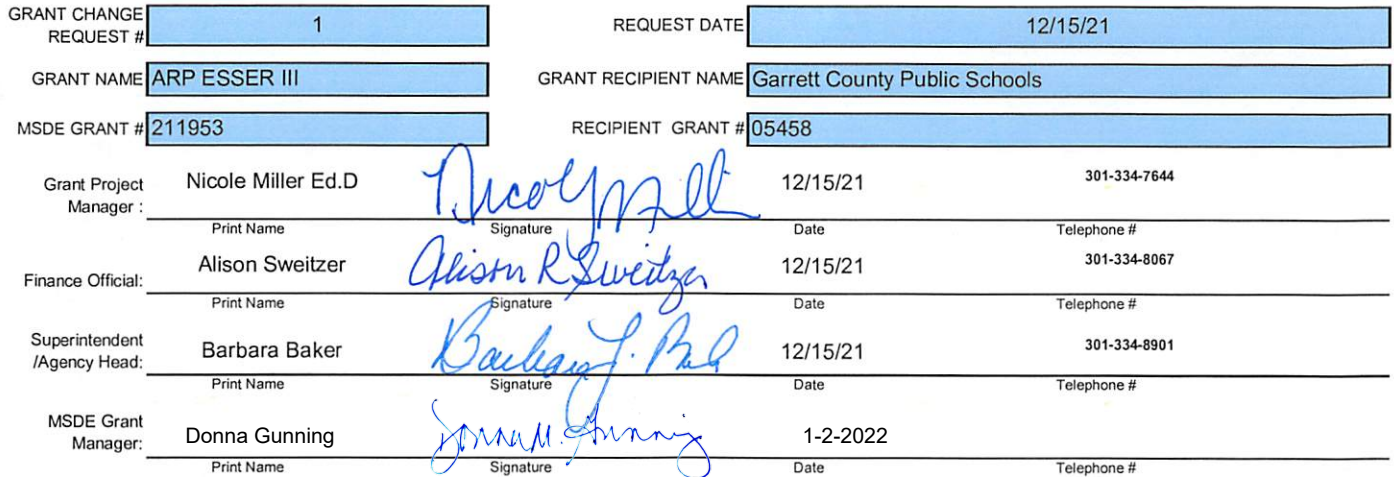 GRANT CHANGE REQUEST # 1 REQUEST DATE 12/15/21
GRANT NAME ARP ESSER III GRANT RECIPIENT NAME Garrett County Public Schools
MSDE GRANT # 211953 RECIPIENT GRANT # 05458
Grant Project Manager : Nicole Miller Ed.D Nicole Mill 12/15/21 301-334-7644
Print Name Signature Date Telephone #
Finance Official: Alison Sweitzer Alison R Sweitzer 12/15/21 301-334-8067
Print Name Signature Date Telephone #
Superintendent /Agency Head: Barbara Baker Barbara J. Bak 12/15/21 301-334-8901
Print Name Signature Date Telephone #
MSDE Grant Manager: Donna Gunning Donna M. Gunning 1-2-2022
Print Name Signature Date Telephone #